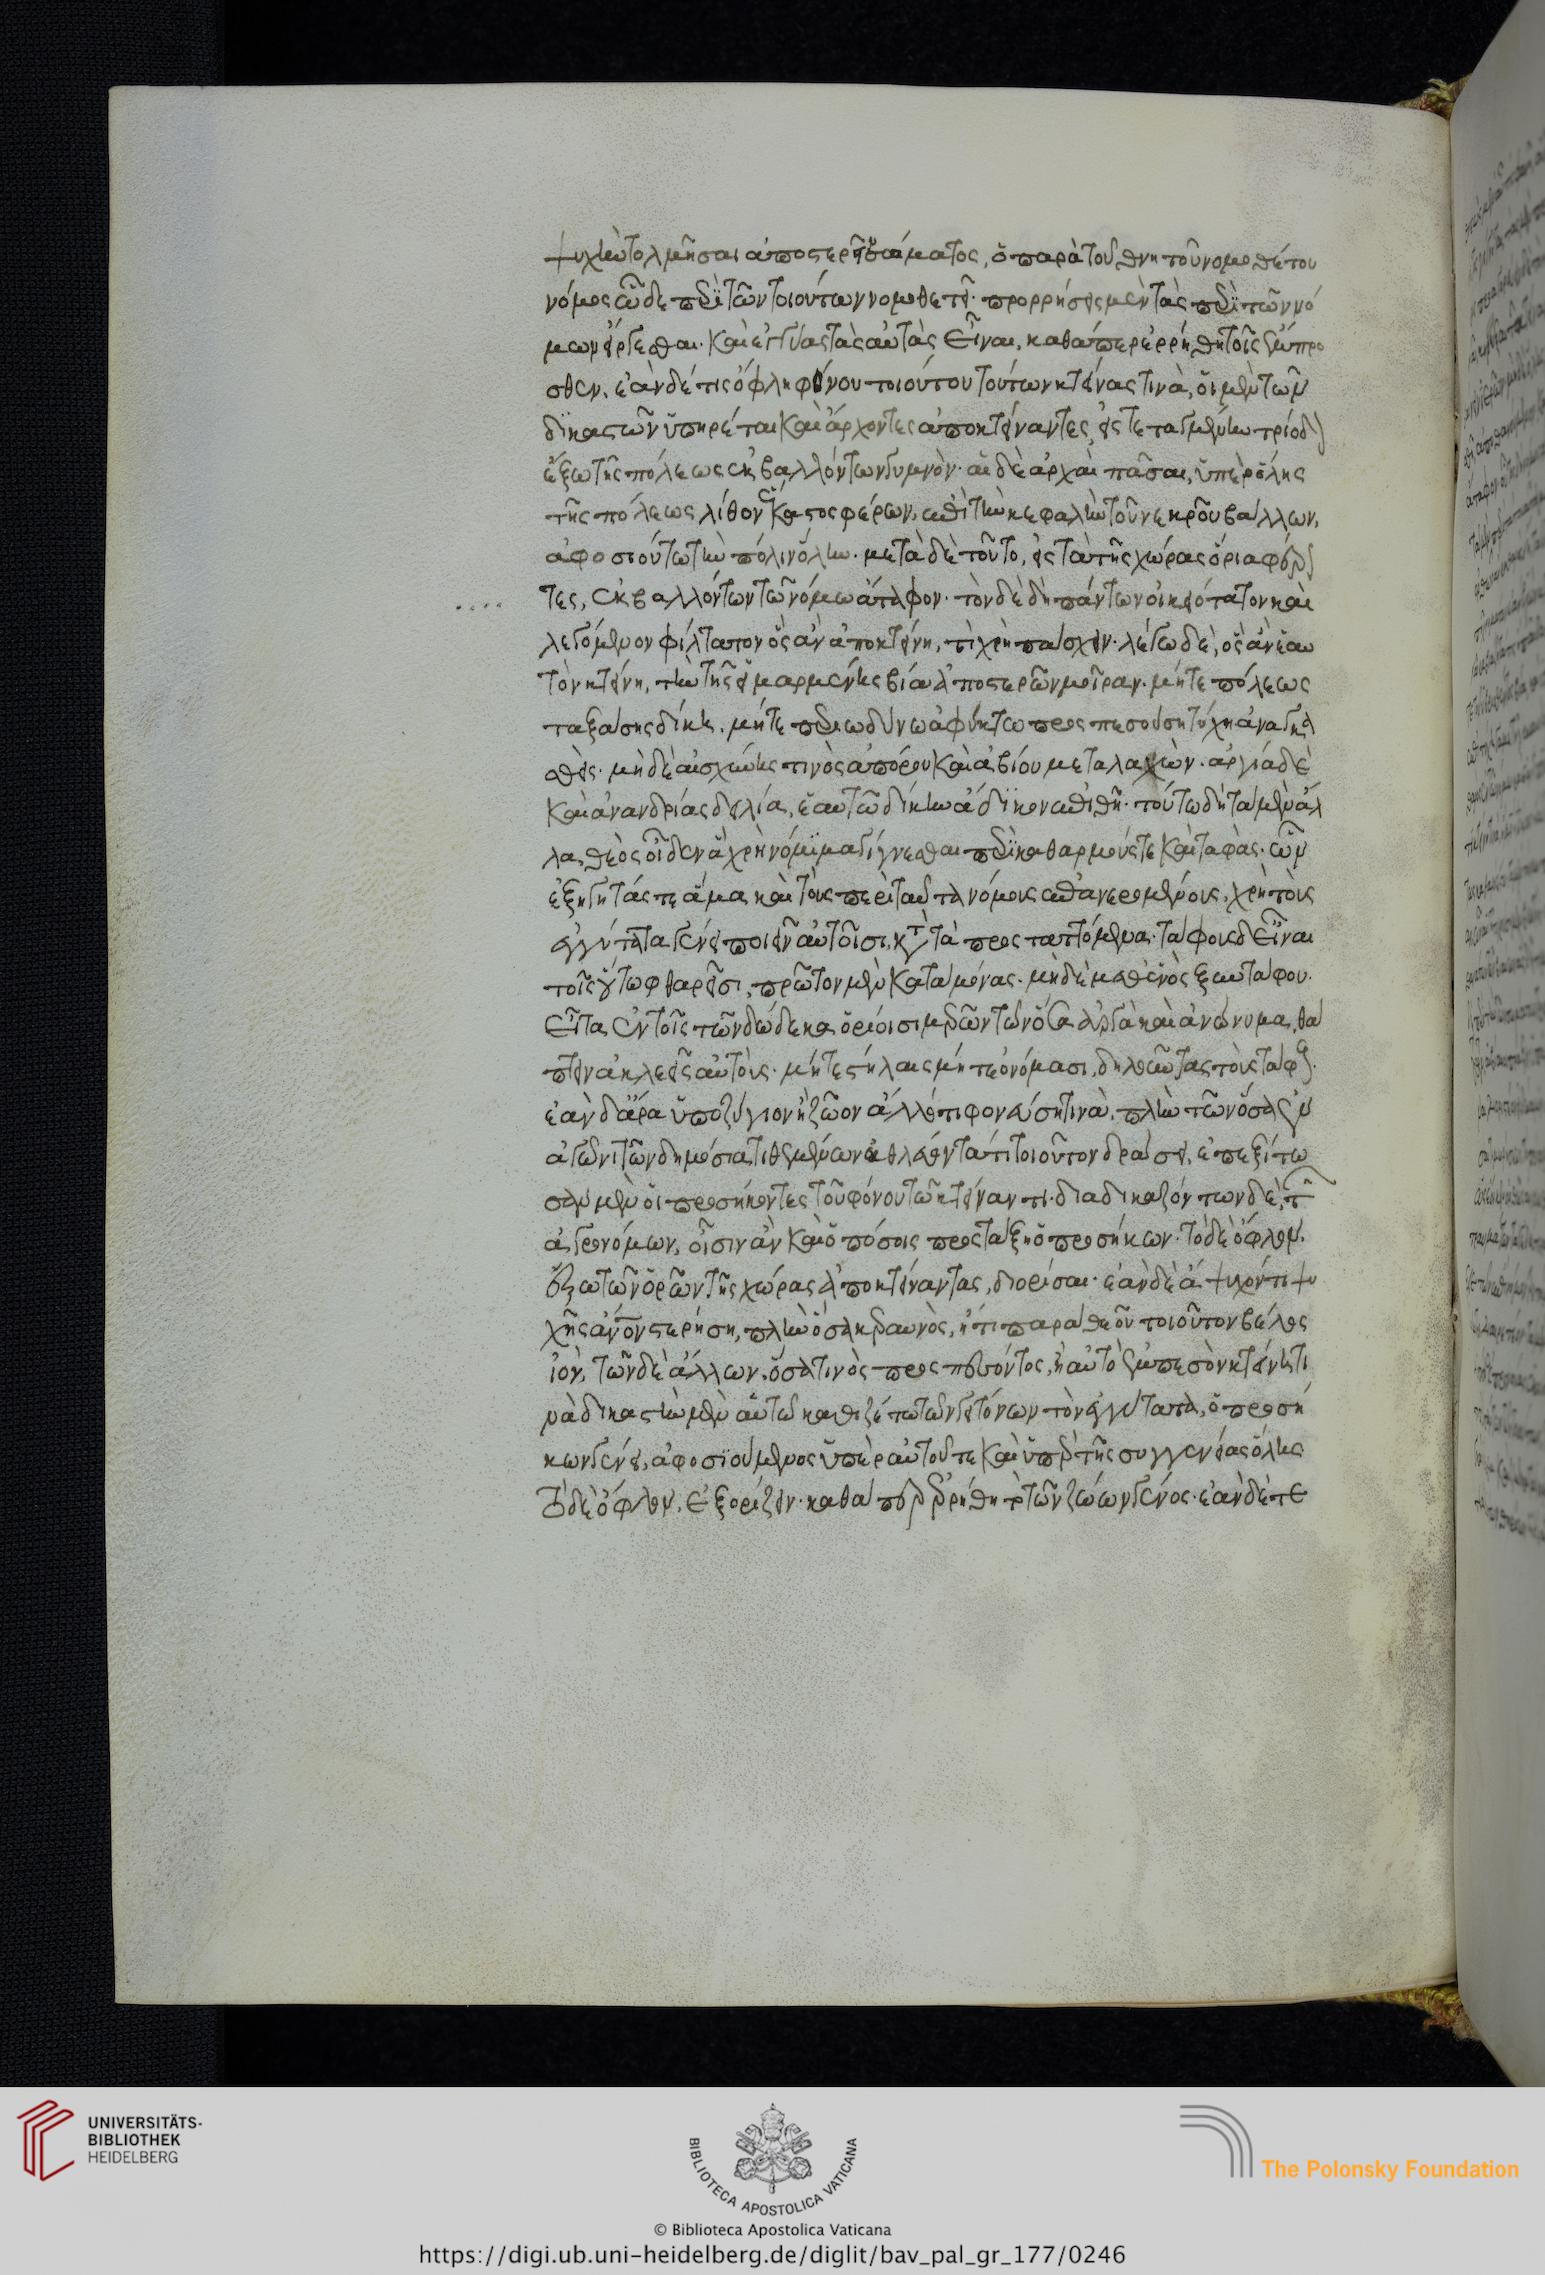 ψυχὴν τολμῆσαι ἀποστερεῖν σώματος, ὃ παρὰ τοῦ θνητοῦ νομοθέτου
νόμος ὧδε περὶ τῶν τοιούτων νομοθετεῖ. προρρήσεις μὲν τὰς περὶ τῶν νο
μίμων εἴργεσθαι. καὶ ἐγγύας τὰς αὐτὰς εἶναι, καθάπερ ἐρρήθη τοῖς ἔμπρο
σθεν. ἐὰν δέ τις ὄφλῃ φόνου τοιούτου τούτων κτείνας τινὰ, οἱ μὲν τῶν
δικαστῶν ὑπηρέται καὶ ἄρχοντες ἀποκτείναντες, εἰς τεταγμένην τρίοδον
ἔξω τῆς πόλεως ἐκβαλλόντων γυμνὸν. αἱ δὲ ἀρχαὶ πᾶσαι, ὑπὲρ ὅλης
τῆς πόλεως λίθον ἕκαστος φέρων, ἐπὶ τὴν κεφαλὴν τοῦ νεκροῦ βάλλων,
ἀφοσιούτω τὴν πόλιν ὅλην. μετὰ δὲ τοῦτο, εἰς τὰ τῆς χώρας ὅρια φέρον
τες, ἐκβαλλόντων τῷ νόμῳ ἄταφον. τὸν δὲ δὴ πάντων οἰκειότατον καὶ
λεγόμενον φίλτατον ὃς ἂν ἀποκτείνῃ, τί χρὴ πάσχειν. λέγω δὲ, ὃς ἂν ἑαυ
τὸν κτείνῃ, τὴν τῆς εἱμαρμένης βίᾳ ἀποστερῶν μοῖραν. μήτε πόλεως
ταξάσης δίκῃ. μήτε περιωδύνῳ ἀφύκτῳ προσπεσούσῃ τύχῃ ἀναγκα
σθείς. μηδὲ αἰσχύνης τινὸς ἀπόρου καὶ ἀβίου μεταλαχὼν. ἀργίᾳ δὲ
καὶ ἀνανδρίας δειλίᾳ, ἑαυτῷ δίκην ἄδικον ἐπιθῇ. τούτῳ δὴ τὰ μὲν ἄλ
λα, θεὸς οἶδεν ἃ χρὴ νόμιμα γίγνεσθαι περὶ καθαρμούς τε καὶ ταφὰς. ὧν
ἐξηγητάς τε ἅμα καὶ τοὺς περὶ ταῦτα νόμους ἐπανερομένους, χρὴ τοὺς
ἐγγύτατα γένει ποιεῖν αὐτοῖσι κατὰ τὰ προσταττόμενα. τάφους δ' εἶναι
τοῖς οὕτω φθαρεῖσι, πρῶτον μὲν κατὰ μόνας. μηδὲ μεθ' ἑνὸς ξυντάφου.
εἶτα ἐν τοῖς τῶν δώδεκα ὁρίοισι μερῶν τῶν ὅσα ἀργὰ καὶ ἀνώνυμα, θά
πτειν ἀκλεεῖς αὐτοὺς. μήτε στήλαις μήτε ὀνόμασι, δηλοῦντας τοὺς τάφους.
ἐὰν δ' ἄρα ὑποζύγιον ἢ ζῷον ἄλλό τι φονεύσῃ τινὰ, πλὴν τῶν ὅσα ἐν
ἀγῶνι τῶν δημοσίᾳ τιθεμένων ἀθλεύοντά τι τοιοῦτον δράσει, ἐπεξίτω
σαν μὲν οἱ προσήκοντες τοῦ φόνου τῷ κτείναντι. διαδικαζόντων δὲ, τῶν
ἀγρονόμων, οἷσιν ἂν καὶ ὁπόσοις προστάξῃ ὁ προσήκων. τὸ δὲ ὄφλον,
ἔξω τῶν ὅρων τῆς χώρας ἀποκτείναντας, διορίσαι. ἐὰν δὲ ἄψυχόν τι ψυ
χῆς ἄνθρωπον στερήσῃ, πλὴν ὅσα κεραυνὸς, ἤ τι παρὰ θεοῦ τοιοῦτον βέλος
ἰὸν, τῶν δὲ ἄλλων, ὅσα τινὸς προσπεσόντος, ἢ αὐτὸ ἐμπεσὸν κτείνῃ τι
νὰ δικαστὴν μὲν αὑτῷ καθιζέτω τῶν γειτόνων τὸν ἐγγύτατα, ὁ προσή
κων γένει, ἀφοσιούμενος ὑπὲρ αὑτοῦ τε καὶ ὑπὲρ τῆς συγγενείας ὅλης
τὸ δὲ ὄφλον, ἐξορίζειν. καθάπερ ἐρρήθη τὸ τῶν ζώων γένος. ἐὰν δέ τε
UNIVERSITÄTS-
BIBLIOTHEK
HEIDELBERG
BIBLIOTECA APOSTOLICA VATICANA
The Polonsky Foundation
© Biblioteca Apostolica Vaticana
https://digi.ub.uni-heidelberg.de/diglit/bav_pal_gr_177/0246